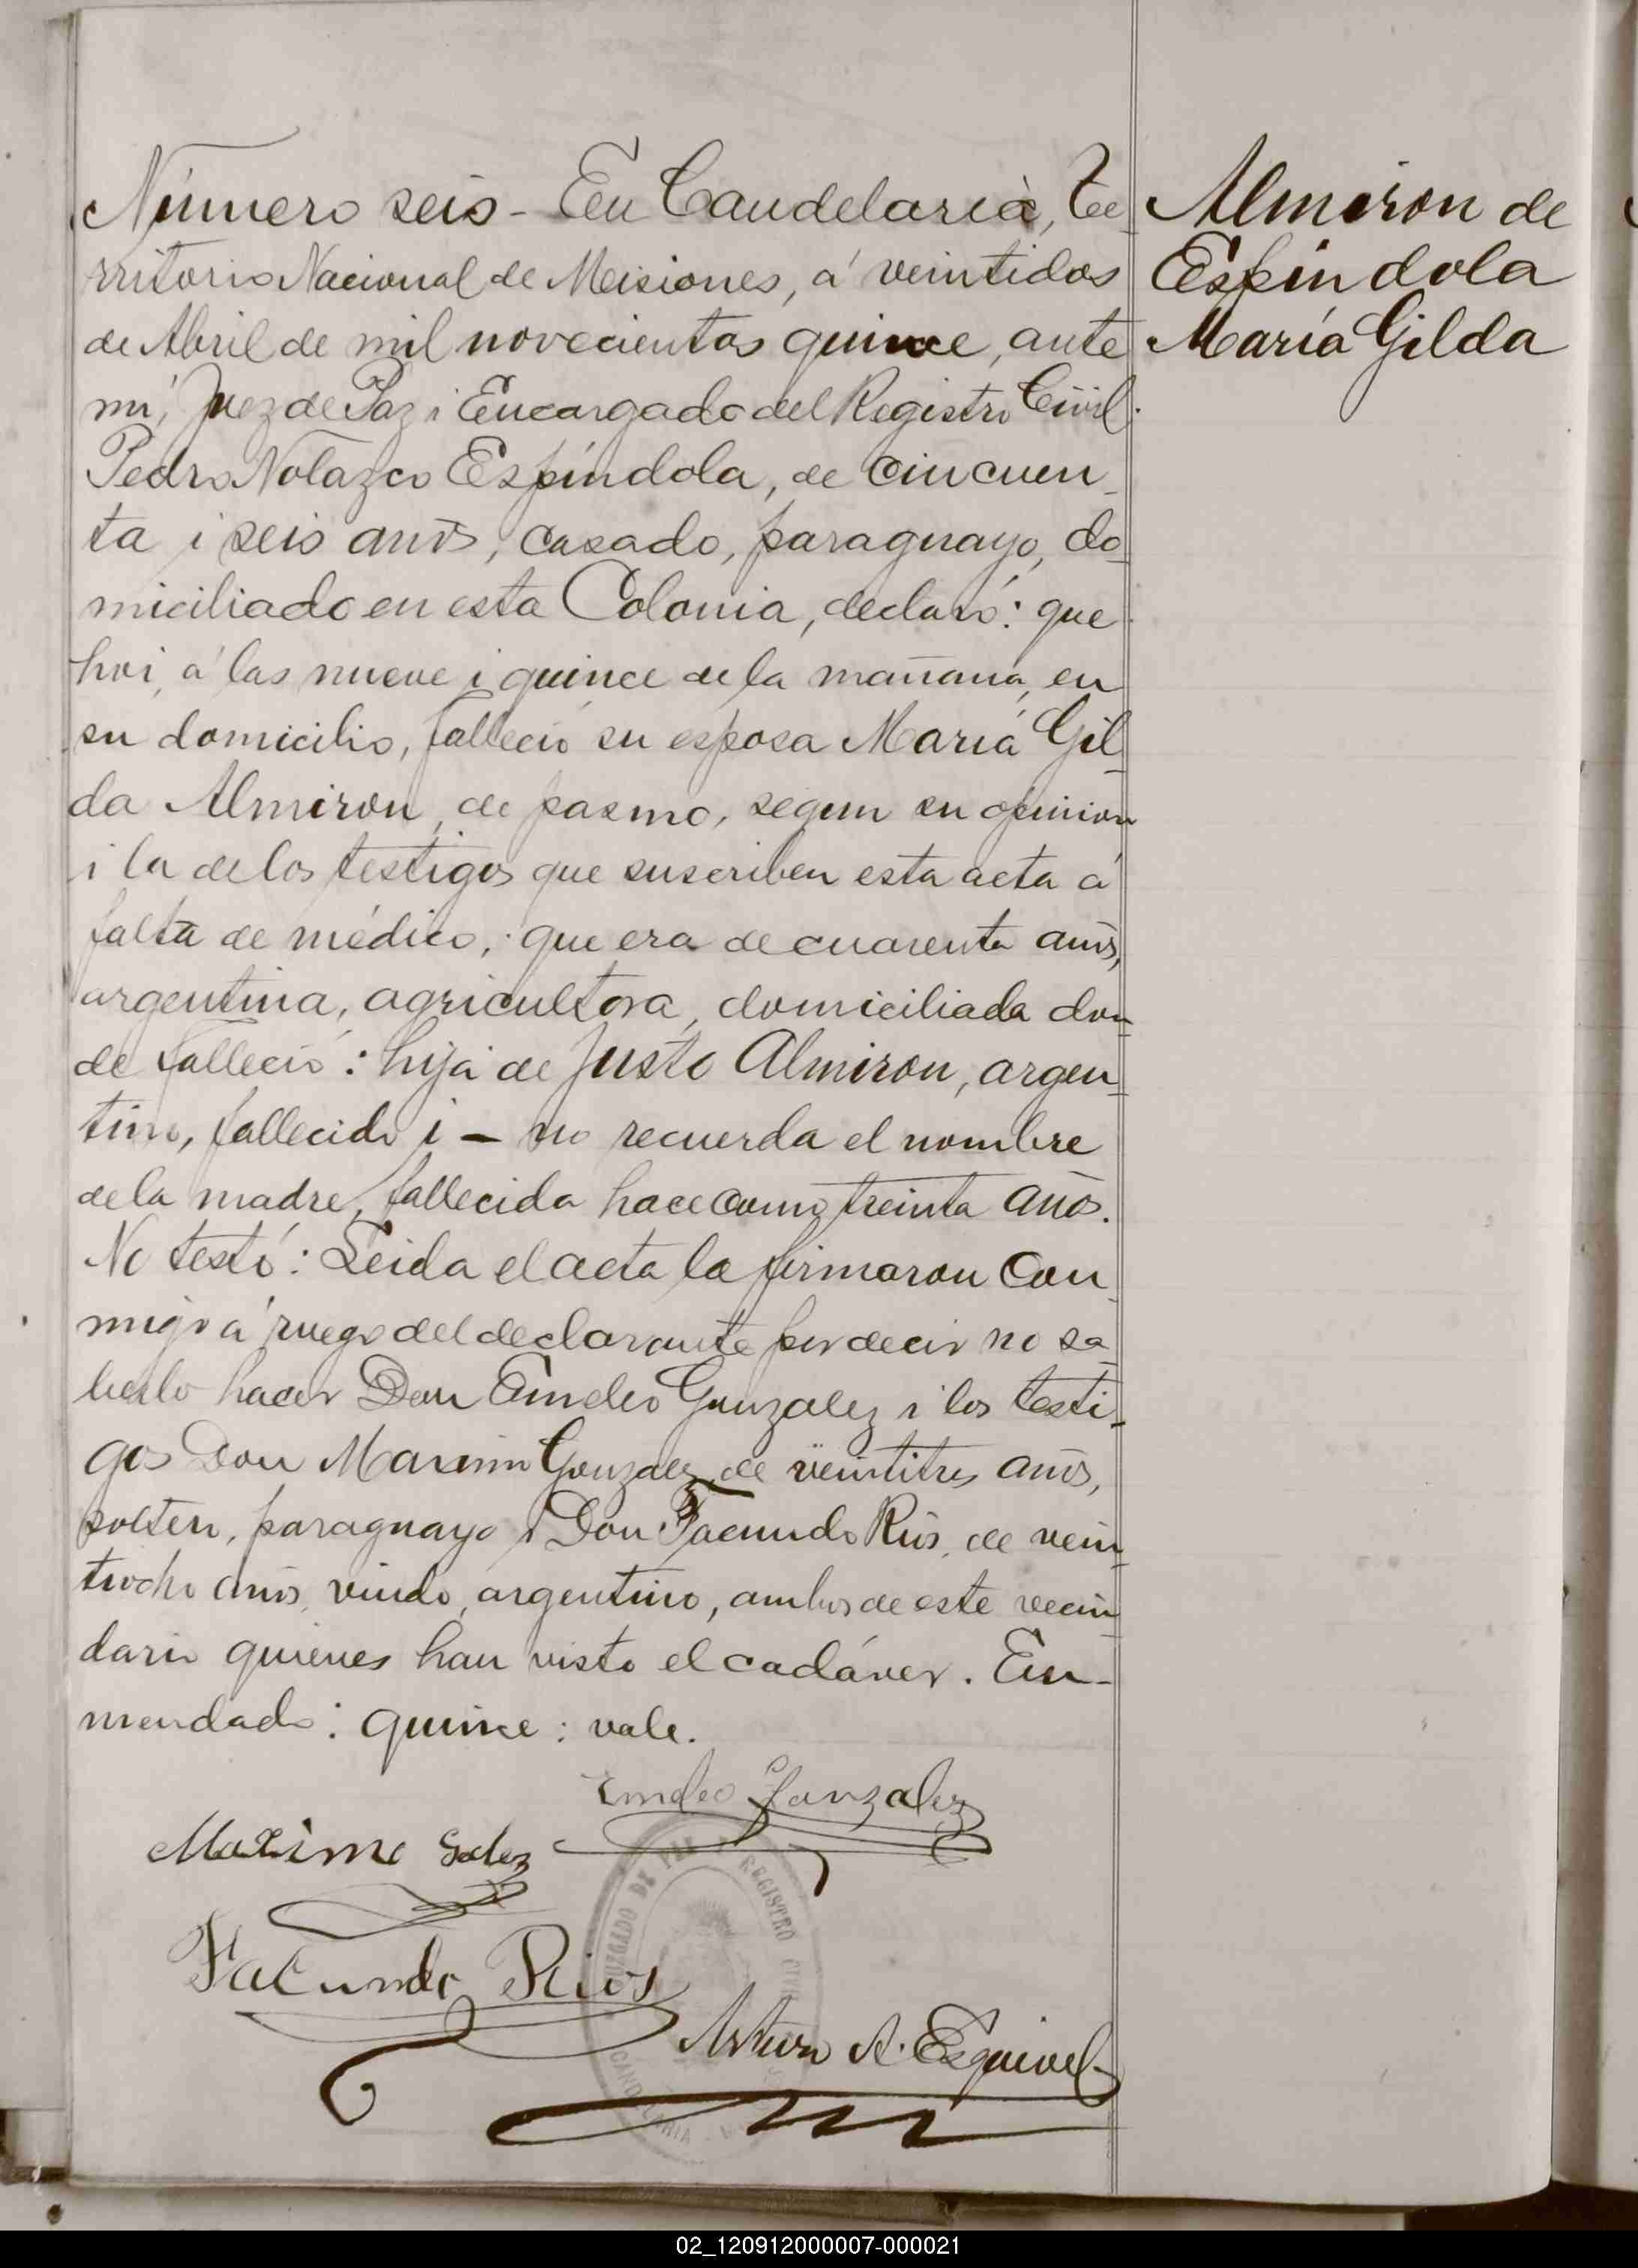 Número seis - En Candelaria, Te
rritorio Nacional de Misiones, á veintidos
de Abril de mil novecientos quince, ante
mi, Juez de Paz i Encargado del Registro Civil
Pedro Nolazco Espíndola, de cincuen
ta i seis años, casado, paraguayo, do
miciliado en esta Colonia, declaró: que
hoi, á las nueve i quince de la mañana, en
su domicilio, falleció su esposa María Gil
da Almiron, de pasmo, segun su opinion
i la de los testigos que suscriben esta acta á
falta de médico; que era de cuarenta años,
argentina, agricultora, domiciliada don
de falleció: hija de Justo Almiron, argen
tino, fallecido i - no recuerda el nombre
de la madre, fallecida hace como treinta años.
No testó: Leida el acta la firmaron con
migo á ruego del declarante por decir no sa
berlo hacer Don Emelio Gonzalez i los testi-
gos Don Maximo Gonzalez, de veintitres años,
soltero, paraguayo i Don Facundo Rios, de vein
tiocho años, viudo, argentino, ambos de este vecin
dario quienes han visto el cadáver. En-
mendado: quince: vale.
Almiron de
Espíndola
María Gilda
Emelio Gonzalez
Maximo Gonlez
Facundo Rios
Arturo A. Esquivel
JUZGADO DE PAZ
REGISTRO CIVIL
CANDELARIA
02_120912000007-000021